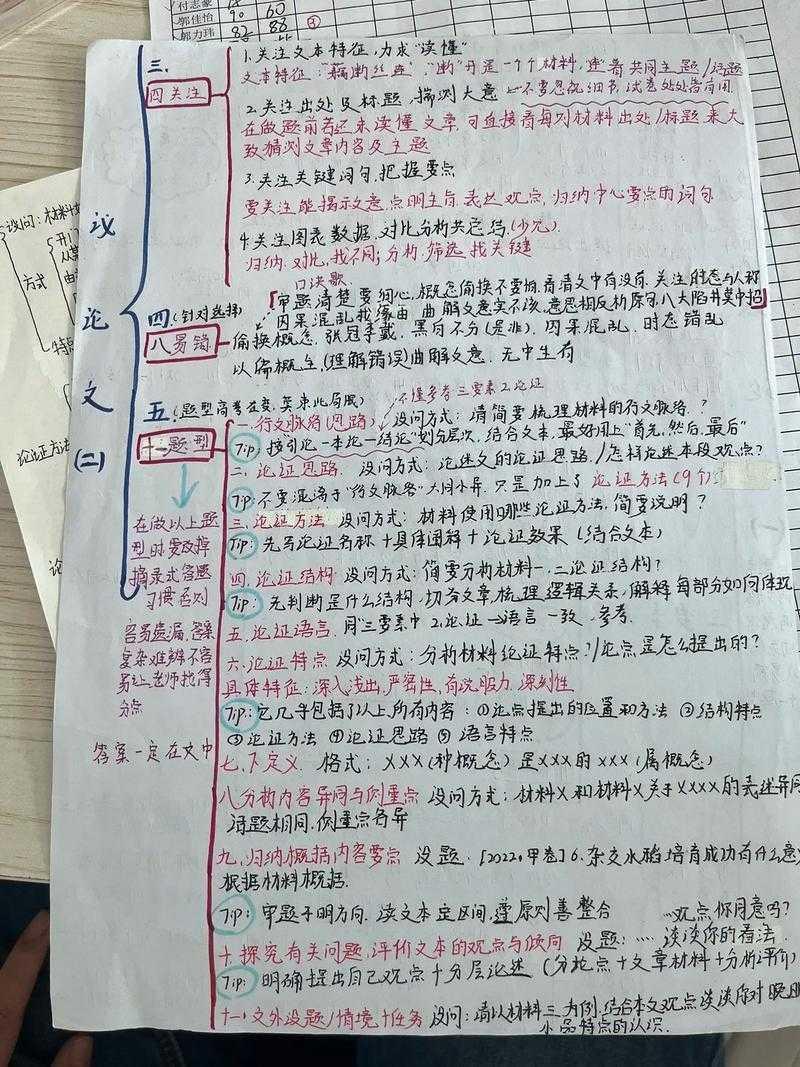 付志豪
郭佳怡 90 60
郭力玮 82 88
③
设问:材料
方式
特点
论证方法
议论文(二)
三.
四关注
1.关注文本特征,力求“读懂”
文本特征:“藕断丝连”“断”开是一个个材料,连着共同主题/话题
2.关注出处及标题,揣测大意 不要忽视细节,试卷处处皆有用
在做题前若还未读懂文章,可直接看每则材料出处/标题来大
致猜测文章内容及主题
3.关注关键词句,把握要点
要关注能揭示文意,点明主旨,表达观点,归纳中心要点的词句
4.关注图表数据,对比分析共总结(少见)
归纳,对比,找不同;分析,筛选,找关键
口诀歌
四.(针对选择)
八易错
「审题清楚要细心,概念偷换不要怕,看清文中有没有,关注时态与人称
因果混乱找缘由,曲解文意实不该,意思相反析原句,八大陷井莫中招」
偷换概念,张冠李戴,黑白不分(是非),因果混乱,时态错乱
以偏概全,(理解错误)曲解文意,无中生有
五.(题型高考在变,莫束此局限)
十一题型
不懂参考三要素2.论证
一.行文脉络(思路) 设问方式:请简要梳理材料的行文脉络.?
Tip:按引论—本论—结论”划分层次,结合文本,最好用上“首先,然后,最后”
二.论证思路 设问方式:论述文的论证思路/怎样论述本段观点?
Tip:不要混淆于“行文脉络”大同小异.只是加上了论证方法(9个)
三.论证方法 设问方式:材料使用哪些论证方法,简要说明?
Tip:先写论证名称+具体阐释+论证效果(结合文本)
四.论证结构 设问方式:简要分析材料一,二论证结构?
Tip:先判断是什么结构,切分文章,梳理逻辑关系,解释每部分如何体现
五.论证语言 用“三要素中2.论证→语言一致,参考.
六.论证特点 设问方式:分析材料论证特点?/论点是怎么提出的?
具体特征:深入浅出,严密性,有说服力,深刻性
Tip:它几乎包括了以上所有内容:①论点提出的位置和方法 ②结构特点
③论证方法 ④论证思路 ⑤语言特点
七.下定义 格式:XXX(种概念)是XXX的XXX(属概念)
八分析内容异同与侧重点 设问方式:材料X和材料X关于XXXX的表述异同
话题相同,侧重点各异
九.归纳概括内容要点 设题.[2022.甲卷]6.杂交水稻培育成功有什么意
根据材料概括.
Tip:审题干明方向.读文本定区间,遵原则善整合 …观点你同意吗?
十.探究有关问题,评价文本的观点与倾向 设题:…谈谈你的看法.
Tip:明确提出自己观点+分层论述(分论点+文章材料+分析评价)
十一.文外设题/情境+任务 设问:请以材料三为例,结合本文观点谈谈你对晚明
小品特点的认识.
在做以上题
型时要改掉
摘录式答题
习惯否则
容易遗漏,答案
复杂难辨不容
易让老师找得
分点
答案一定在文中